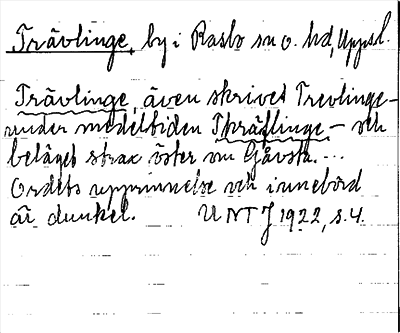 Trävlinge, by i Rasbo sn o. hd, Uppsl.
Trävlinge, även skrivet Trevlinge -
under medeltiden Thräflinge - och
beläget strax öster om Gåvsta. ...
Ordets upprinnelse och innebörd
är dunkel. UNTJ 1922, s. 4.